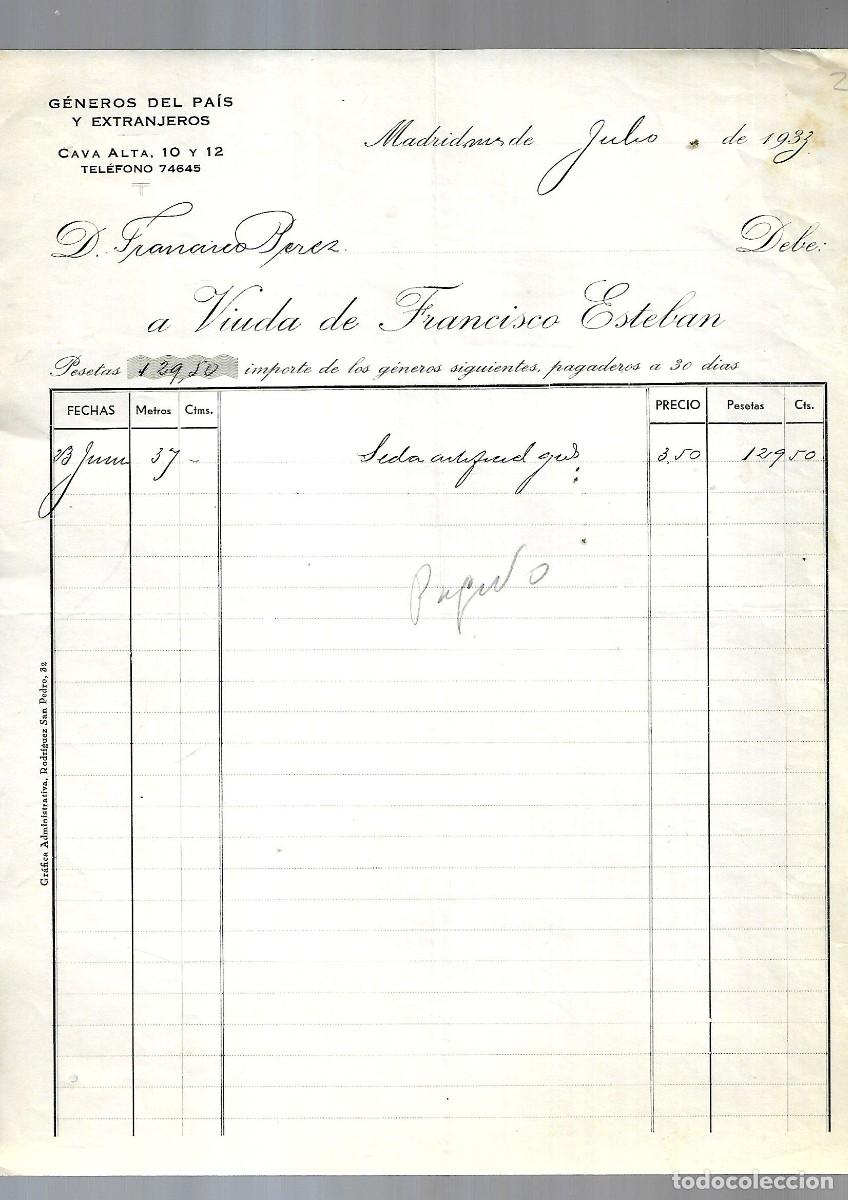 2
GÉNEROS DEL PAÍS
Y EXTRANJEROS
CAVA ALTA, 10 Y 12
TELÉFONO 74645
Madrid, mes de Julio de 1933
D. Francisco Perez Debe:
a Viuda de Francisco Esteban
Pesetas 129,50 importe de los géneros siguientes, pagaderos a 30 días
FECHAS Metros Ctms. PRECIO Pesetas Cts.
37 - Seda 3,50 129 50
Pagado
Gráfica Administrativa, Rodríguez San Pedro, 32
todocoleccion.net